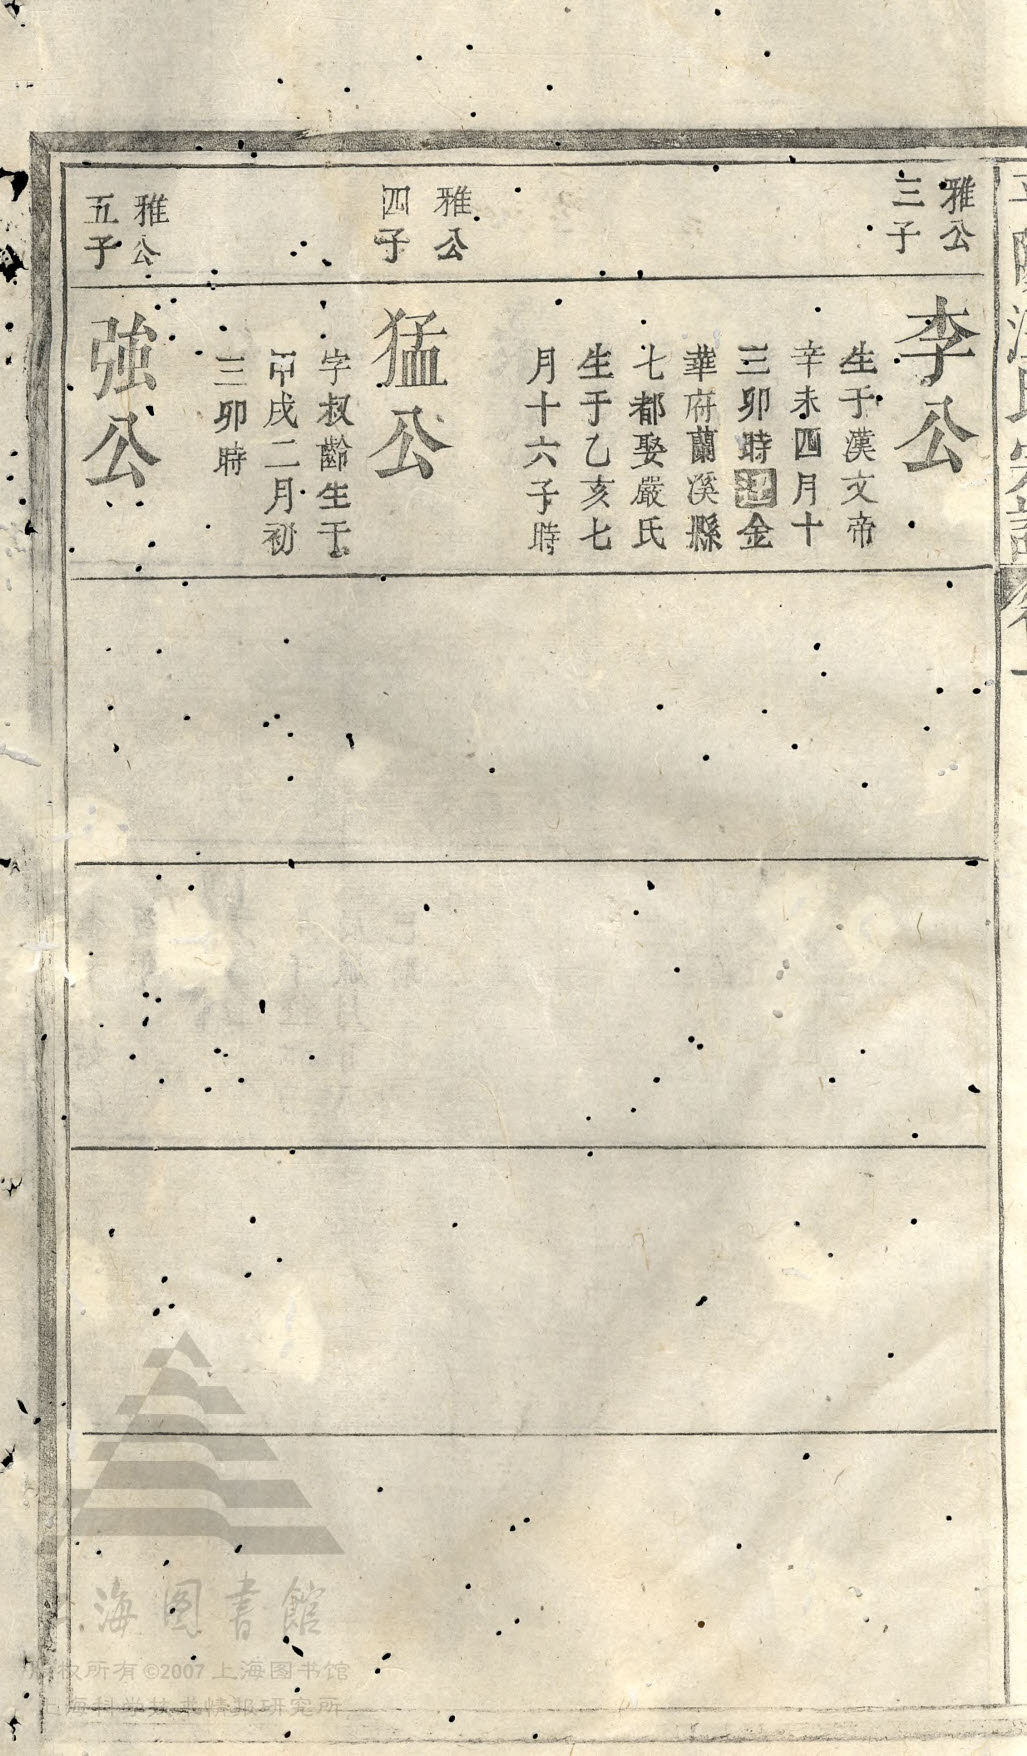 雅公
三子
李公
生于漢文帝
辛未四月十
三卯時迁金
華府蘭溪縣
七都娶嚴氏
生于乙亥七
月十六子時
雅公
四子
猛公
字叔齡生于
甲戌二月初
三卯時
雅公
五子
強公
海图書館
权所有©2007上海图书馆
上海科学技术情报研究所